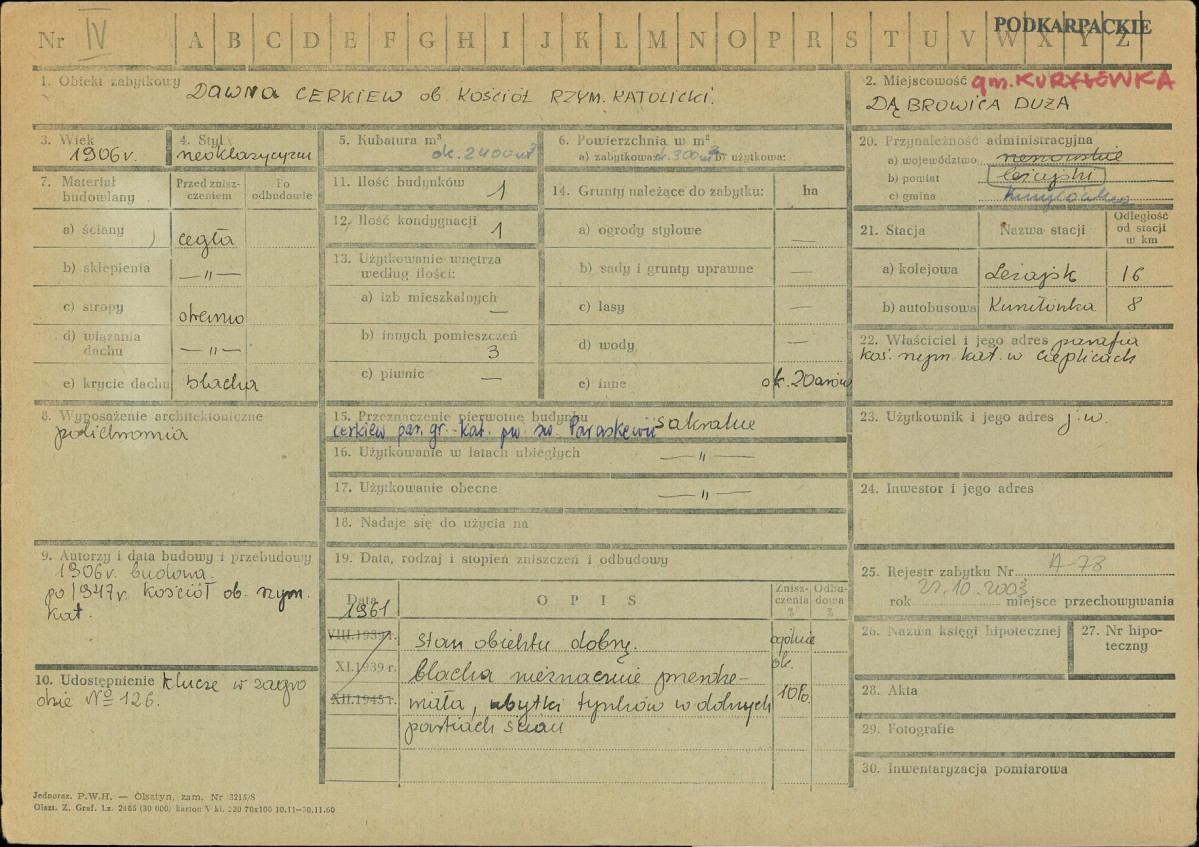 PODKARPACKIE
Nr IV A B C D E F G H I J K L M N O P R S T U V W X Y Z
1. Obiekt zabytkowy DAWNA CERKIEW OB. KOŚCIÓŁ RZYM. KATOLICKI.
2. Miejscowość gm. KURYŁÓWKA
DĄBROWICA DUŻA
3. Wiek
1906 r.
4. Styl
neoklasycyzm
5. Kubatura m³
ok. 2400 m³
6. Powierzchnia w m²
a) zabytkowa: ok. 300 m² b) użytkowa:
7. Materiał budowlany
Przed zniszczeniem
Po odbudowie
a) ściany cegła
b) sklepienia —„—
c) stropy drewno
d) wiązania dachu —„—
e) krycie dachu blacha
8. Wyposażenie architektoniczne
polichromia
9. Autorzy i data budowy i przebudowy
1906 r. budowa.
po 1947 r. kościół ob. rzym.
kat.
10. Udostępnienie klucze w zagro
dzie Nº 126.
11. Ilość budynków 1
12. Ilość kondygnacji 1
13. Użytkowanie wnętrza
według ilości:
a) izb mieszkalnych —
b) innych pomieszczeń 3
c) piwnic —
14. Grunty należące do zabytku: ha
a) ogrody stylowe —
b) sady i grunty uprawne —
c) lasy —
d) wody —
e) inne ok. 20 arów
15. Przeznaczenie pierwotne budynku sakralne
cerkiew par. gr.-kat. pw. św. Paraskewii
16. Użytkowanie w latach ubiegłych —„—
17. Użytkowanie obecne —„—
18. Nadaje się do użycia na
19. Data, rodzaj i stopień zniszczeń i odbudowy
Data
O P I S
Zniszczenia %
Odbudowa %
1961
VIII.1939 r.
XI.1939 r.
XII.1945 r.
stan obiektu dobry.
blacha nieznacznie przerdze-
wiała, ubytki tynków w dolnych
partiach ścian
ogólnie
ok.
10%
20. Przynależność administracyjna
a) województwo rzeszowskie
b) powiat leżajski
c) gmina Kuryłówka
21. Stacja
Nazwa stacji
Odległość od stacji w km
a) kolejowa Leżajsk 16
b) autobusowa Kuryłówka 8
22. Właściciel i jego adres parafia
koś. rzym. kat. w Cieplicach
23. Użytkownik i jego adres j.w.
24. Inwestor i jego adres
25. Rejestr zabytku Nr A 78
rok 22.10.2003 miejsce przechowywania
26. Nazwa księgi hipotecznej
27. Nr hipoteczny
28. Akta
29. Fotografie
30. Inwentaryzacja pomiarowa
Jednoraz. P.W.H. — Olsztyn, zam. Nr 3215/S
Olszt. Z. Graf. Lz. 2485 (30 000) karton V kl. 220 70x100 10.11—30.11.60